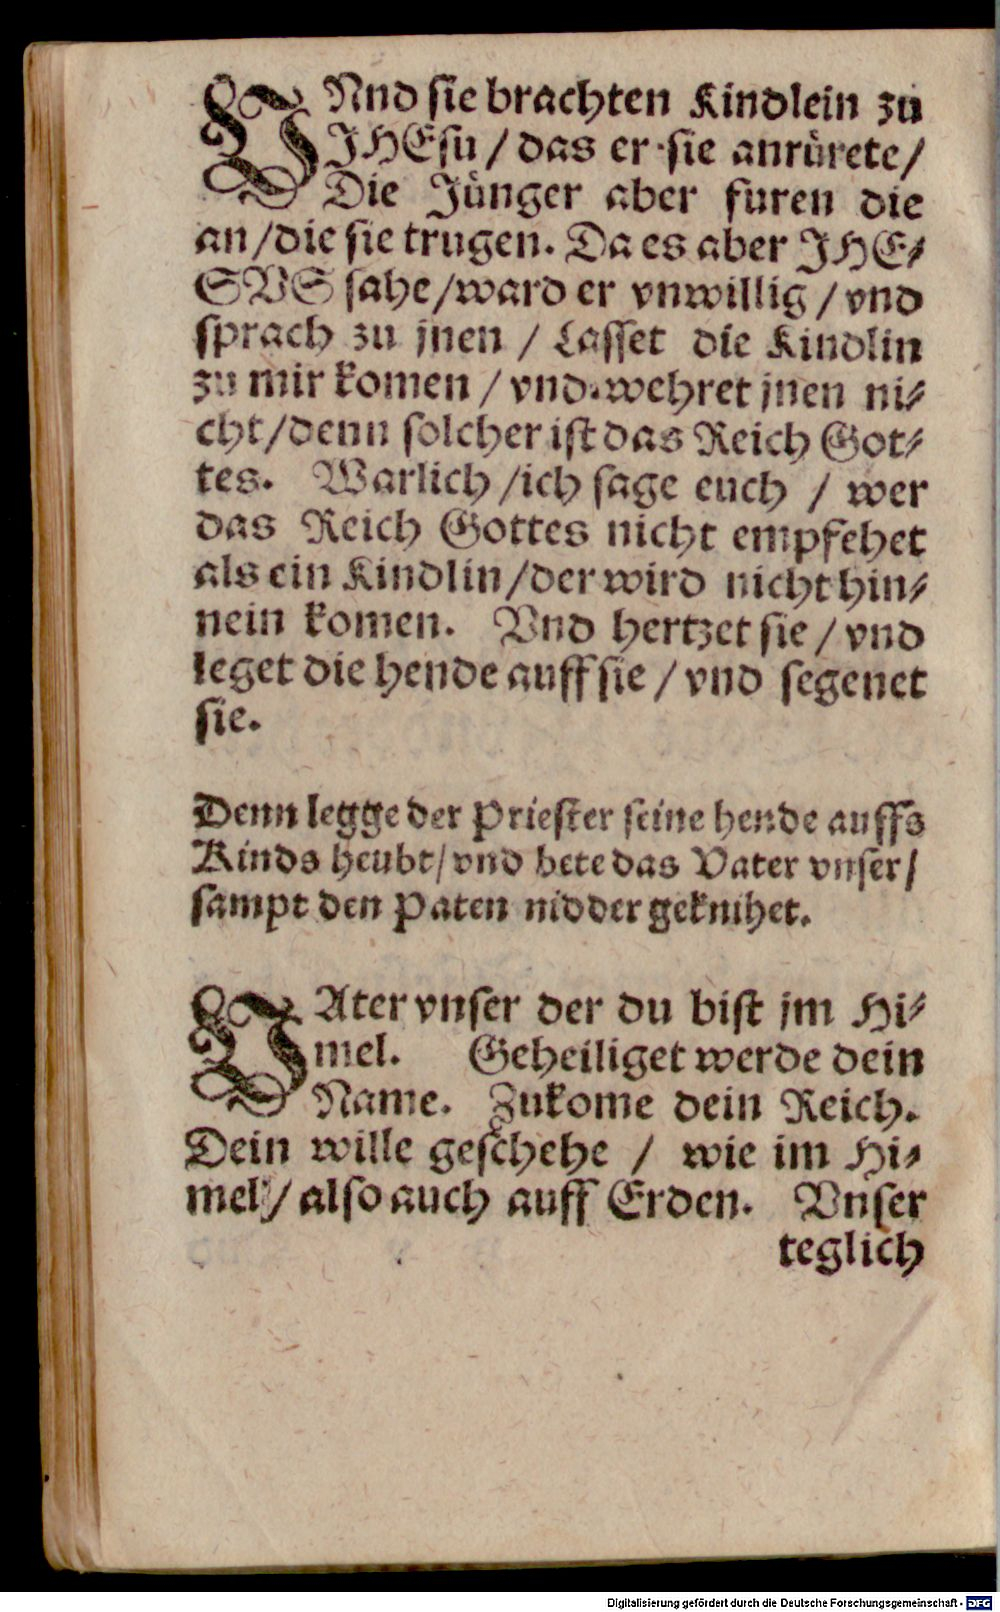 VNnd sie brachten Kindlein zu
JHEsu / das er sie anrürete /
Die Jünger aber furen die
an / die sie trugen. Da es aber JHE⸗
SVS sahe / ward er vnwillig / vnd
sprach zu jnen / Lasset die Kindlin
zu mir komen / vnd wehret jnen ni⸗
cht / denn solcher ist das Reich Got⸗
tes. Warlich / ich sage euch / wer
das Reich Gottes nicht empfehet
als ein Kindlin / der wird nicht hin⸗
nein komen. Vnd hertzet sie / vnd
leget die hende auff sie / vnd segenet
sie.
Denn legge der Priester seine hende auffs
Kinds heubt / vnd bete das Vater vnser /
sampt den Paten nidder geknihet.
VAter vnser der du bist jm Hi⸗
mel. Geheiliget werde dein
Name. Zukome dein Reich.
Dein wille geschehe / wie im Hi⸗
mel / also auch auff Erden. Vnser
teglich
Digitalisierung gefördert durch die Deutsche Forschungsgemeinschaft - DFG